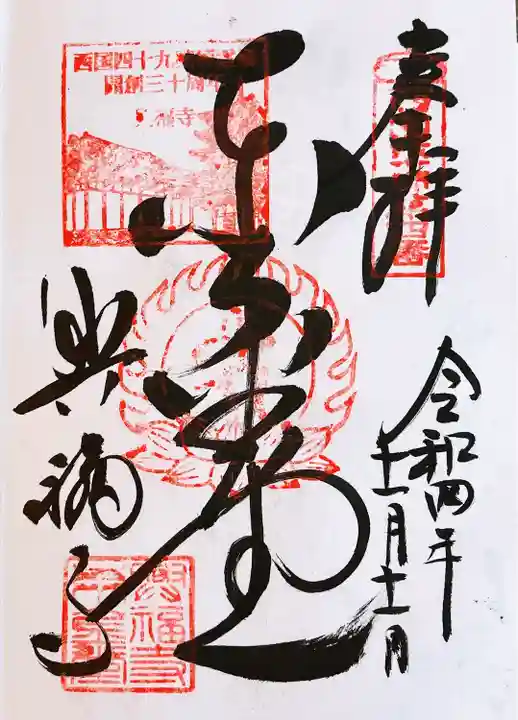 奉拝
令和四年
十一月十一日
東金堂
興福寺
西国四十九薬師霊場
開創三十周年
興福寺